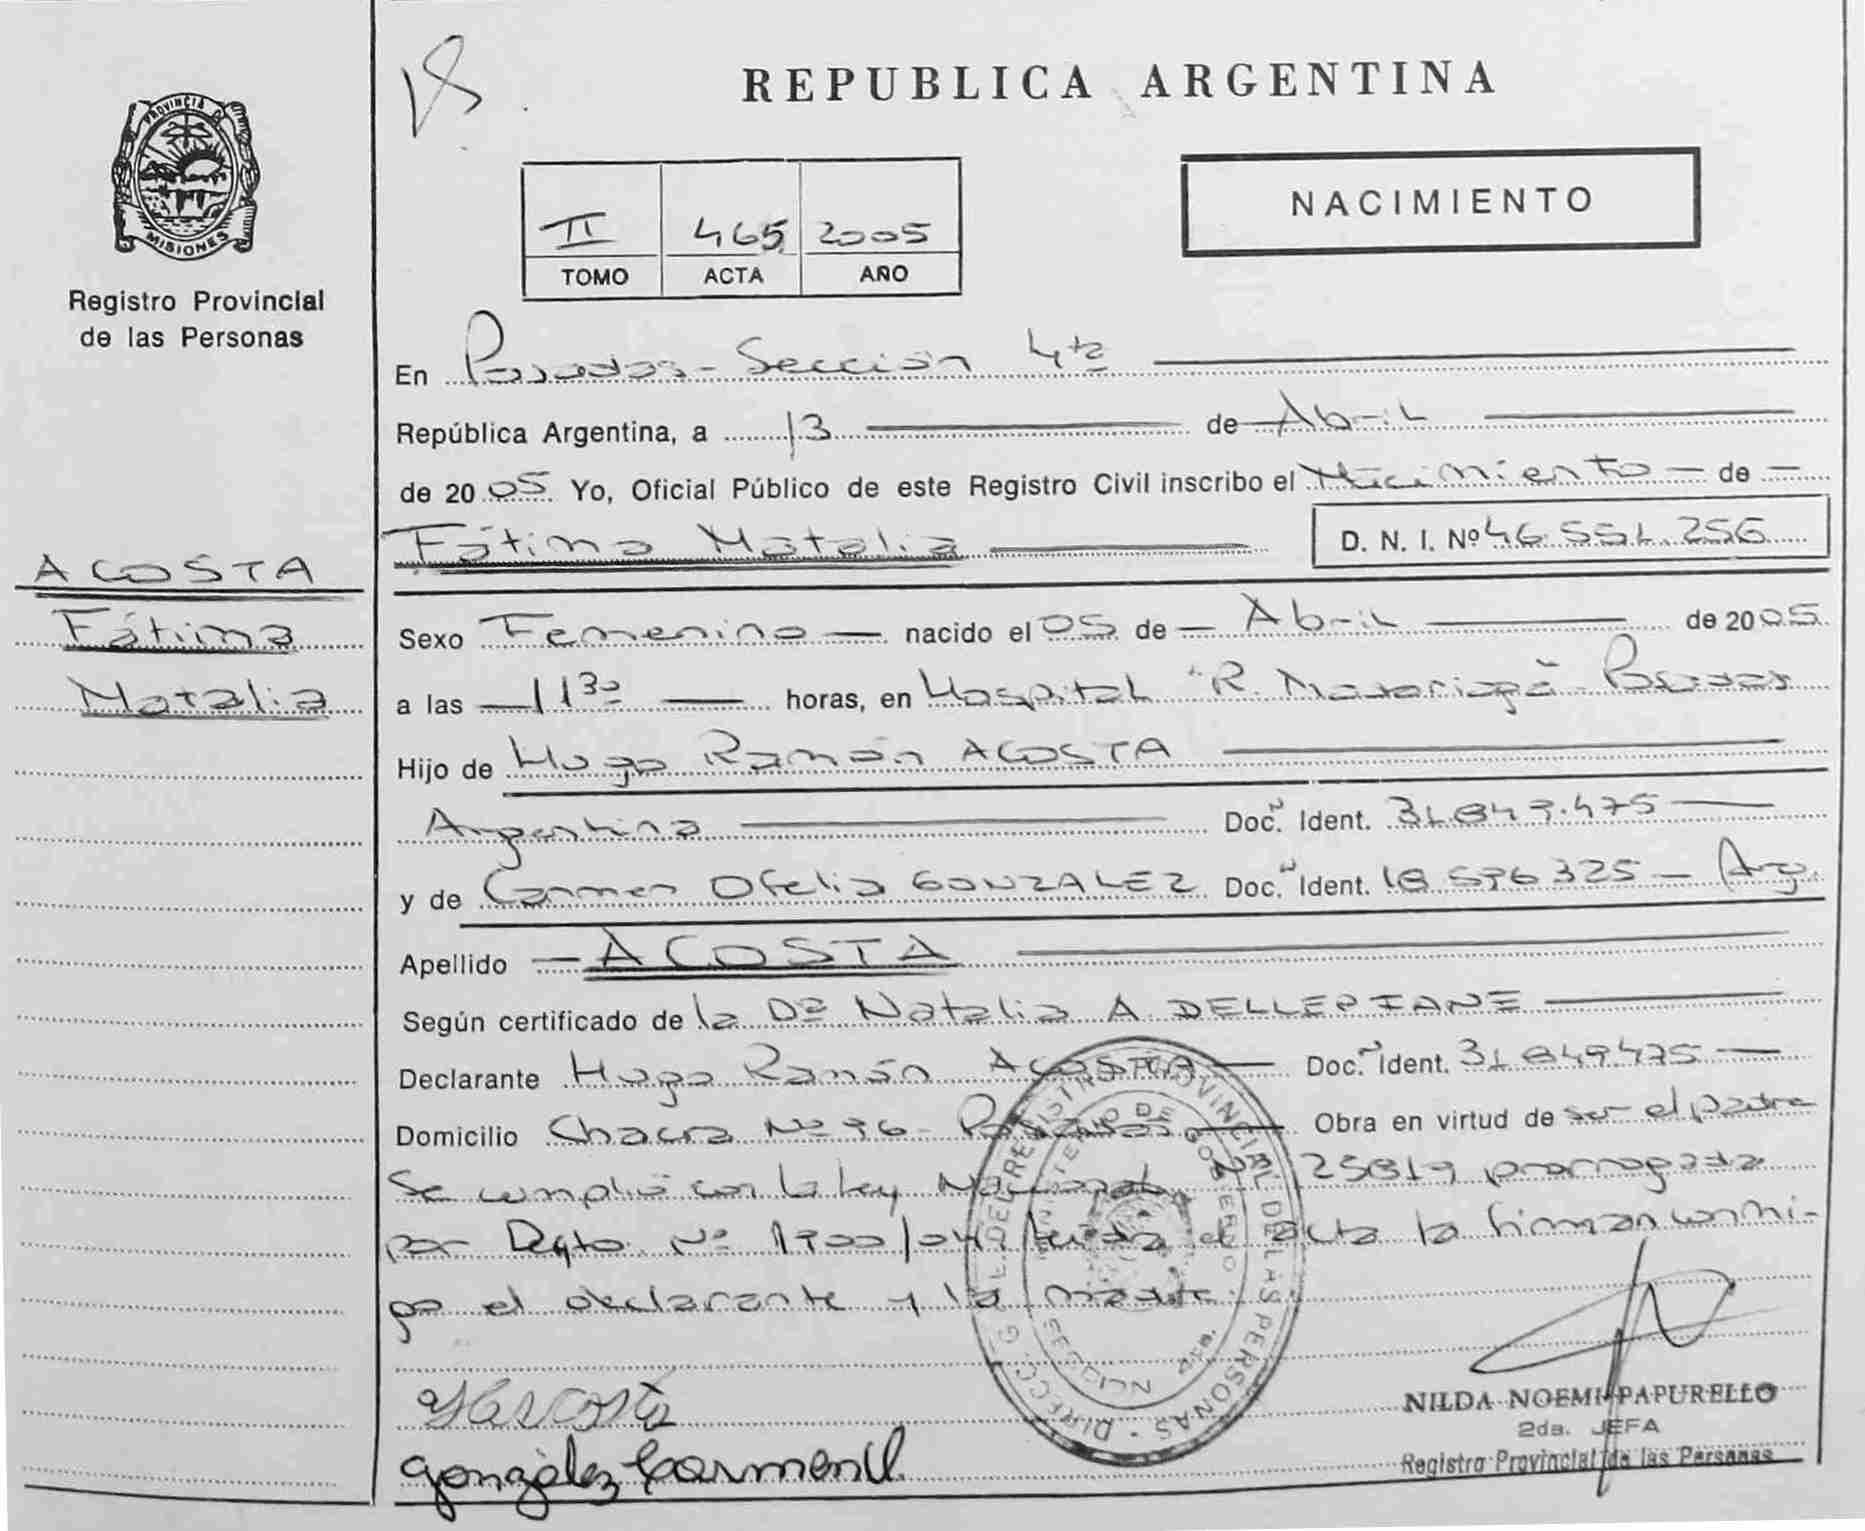 PROVINCIA DE
MISIONES
Registro Provincial
de las Personas
ACOSTA
Fátima
Natalia
REPUBLICA ARGENTINA
NACIMIENTO
II 465 2005
TOMO ACTA AÑO
En Posadas - Sección 4ta
República Argentina, a 13 de Abril
de 2005 Yo, Oficial Público de este Registro Civil inscribo el Nacimiento de
Fátima Natalia D. N. I. Nº 46.551.256
Sexo Femenino nacido el 05 de Abril de 2005
a las 11 30 horas, en Hospital "R. Madariaga" Posadas
Hijo de Hugo Ramón ACOSTA
Argentina Doc. Ident. 31.849.475
y de Carmen Ofelia GONZALEZ Doc. Ident. 18 596 325 - Arg.
Apellido ACOSTA
Según certificado de la Dra Natalia A DELLEPIANE
Declarante Hugo Ramón ACOSTA Doc. Ident. 31 849475
Domicilio Chacra Nº 96 - Posadas Obra en virtud de ser el padre
Se cumplió con la ley Nacional Nº 25819 prorrogada
por Dcto. Nº 1900/04 leída el acta la firman conmi-
go el declarante y la madre.
DIRECC. GRAL. DEL REGISTRO PROVINCIAL DE LAS PERSONAS
MINISTERIO DE GOBIERNO
Acosta
González Carmen O.
NILDA NOEMI PAPURELLO
2da. JEFA
Registro Provincial de las Personas